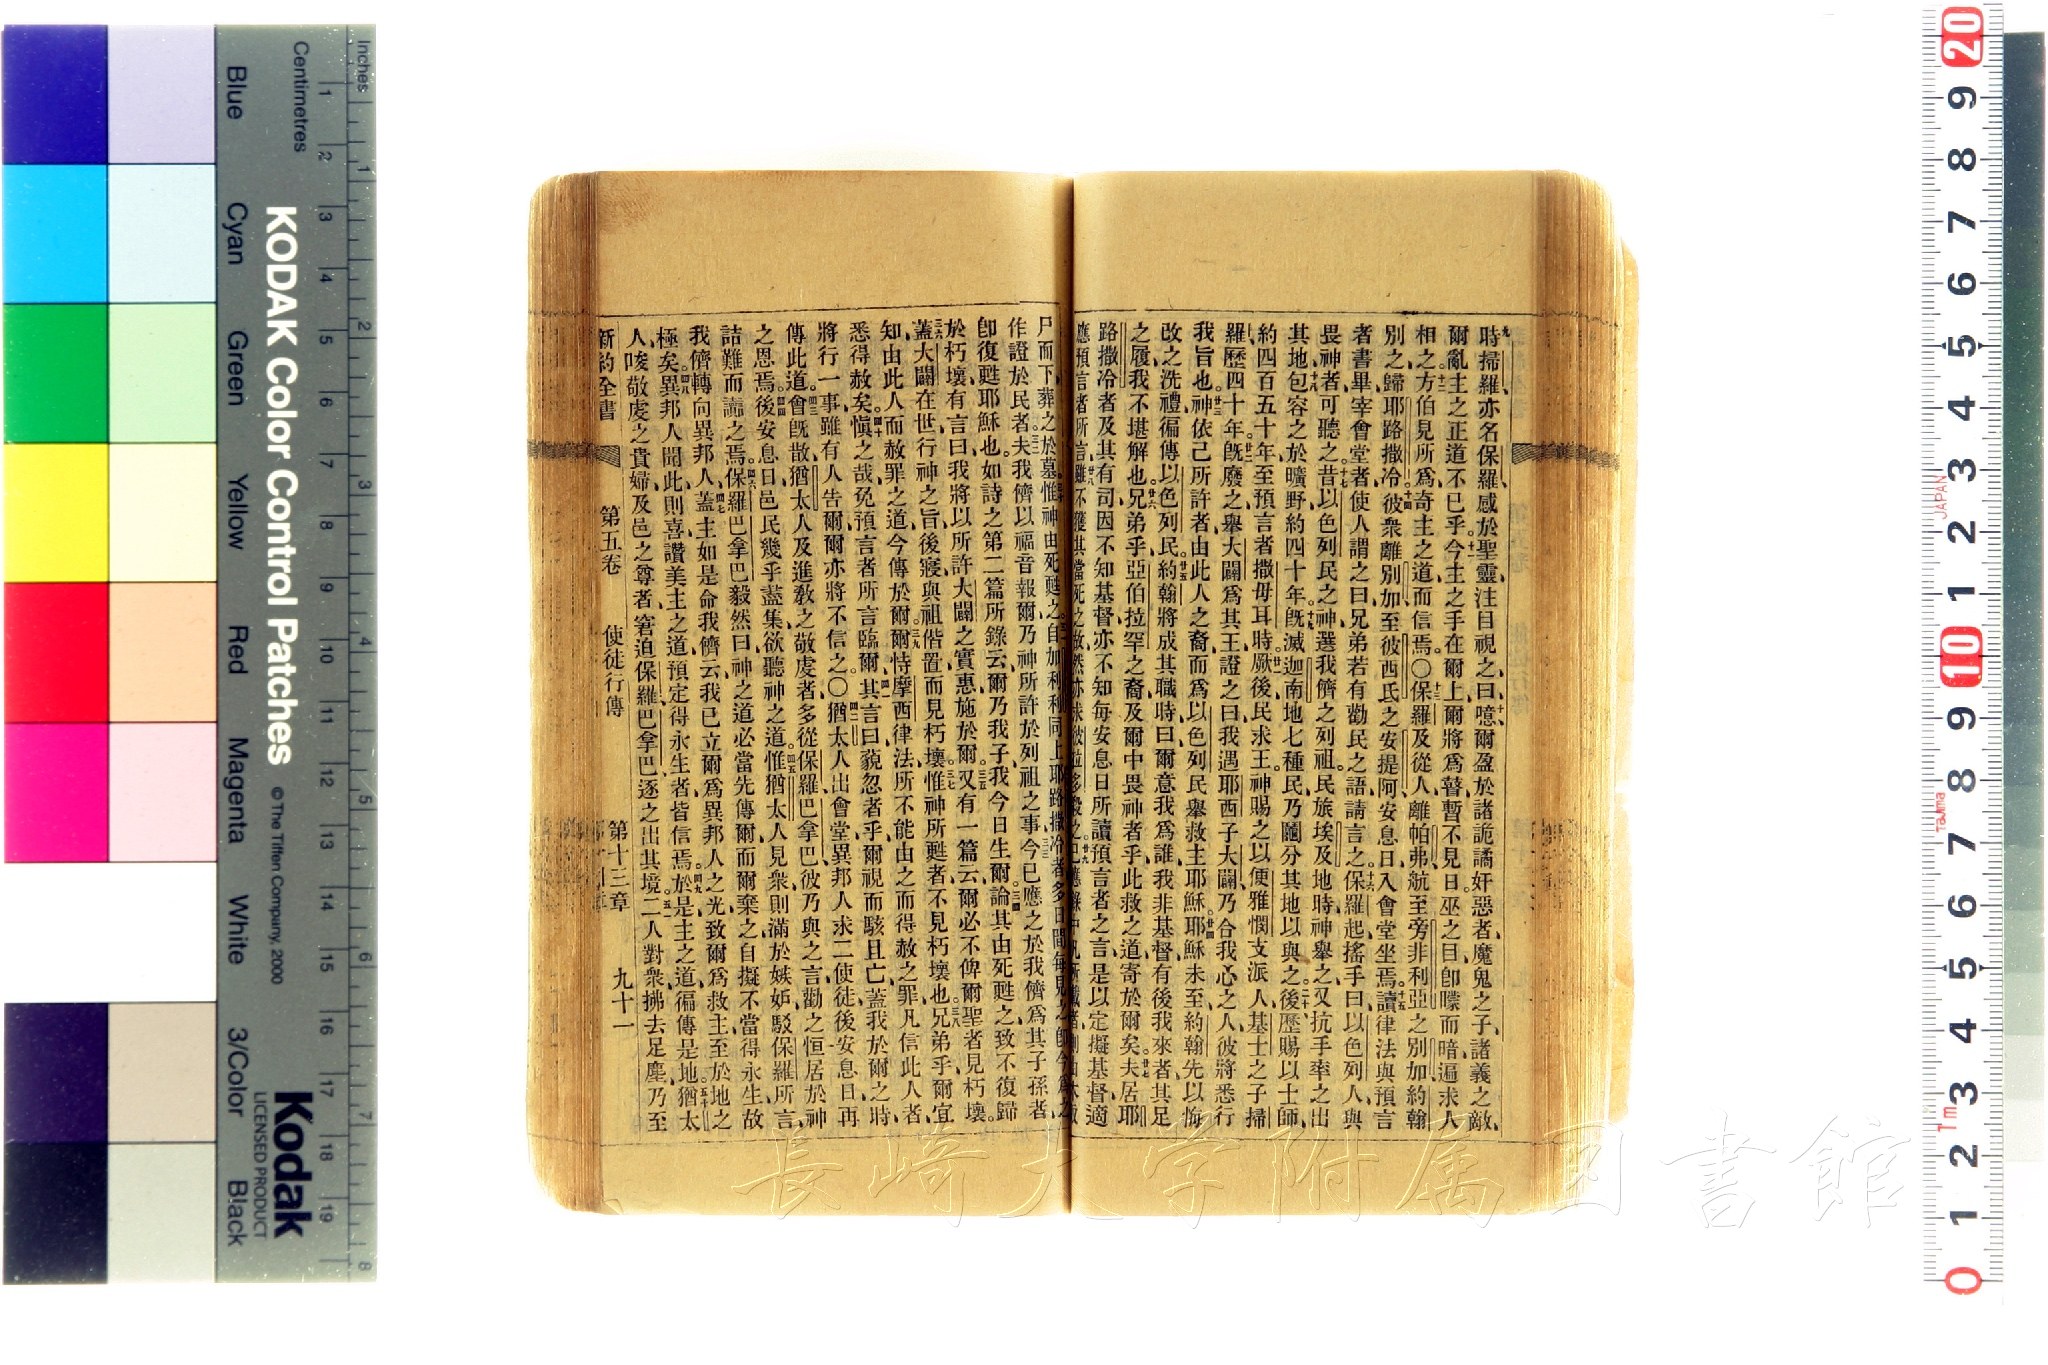 時掃羅、亦名保羅、感於聖靈、注目視之曰、噫、爾盈於諸詭譎奸惡者、魔鬼之子、諸義之敵、
爾亂主之正道不已乎、今主之手在爾上、爾將爲瞽、暫不見日、巫之目卽矇而暗、遍求人
相之、方伯見所爲、奇主之道而信焉。○保羅及從人離帕弗、航至旁非利亞之別加、約翰
別之、歸耶路撒冷、彼衆離別加、至彼西氏之安提阿、安息日入會堂坐焉、讀律法與預言
者書畢、宰會堂者使人謂之曰、兄弟若有勸民之語、請言之、保羅起搖手曰、以色列人與
畏神者、可聽之、昔以色列民之神、選我儕之列祖、民旅埃及地時、神舉之、又抗手率之出
其地、包容之於曠野約四十年、旣滅迦南地七種民、乃鬮分其地以與之、後歷賜以士師、
約四百五十年、至預言者撒母耳時、厥後民求王、神賜之以便雅憫支派人基士之子掃
羅、歷四十年、旣廢之、舉大闢爲其王、證之曰、我遇耶西子大闢、乃合我心之人、彼將悉行
我旨也、神依己所許者、由此人之裔、而爲以色列民舉救主耶穌、耶穌未至、約翰先以悔
改之洗禮、徧傳以色列民、約翰將成其職時曰、爾意我爲誰、我非基督、有後我來者、其足
之履、我不堪解也、兄弟乎、亞伯拉罕之裔、及爾中畏神者乎、此救之道寄於爾矣、夫居耶
路撒冷者、及其有司、因不知基督、亦不知每安息日所讀預言者之言、是以定擬基督、適
應預言者所言、雖不獲其當死之故、然亦求彼拉多殺之
尸而下、葬之於墓、惟神由死甦之、自加利利同上耶路撒冷者、多日間每見之、卽今爲之
作證於民者、夫我儕以福音報爾、乃神所許於列祖之事、今已應之於我儕爲其子孫者、
卽復甦耶穌也、如詩之第二篇所錄云、爾乃我子、我今日生爾、論其由死甦之、致不復歸
於朽壞、有言曰、我將以所許大闢之實惠施於爾、又有一篇云、爾必不俾爾聖者見朽壞。
蓋大闢在世、行神之旨、後寢與祖偕置而見朽壞、惟神所甦者、不見朽壞也、兄弟乎、爾宜
知由此人而赦罪之道、今傳於爾、爾恃摩西律法、所不能由之而得赦之罪、凡信此人者、
悉得赦矣、愼之哉、免預言者所言臨爾、其言曰、藐忽者乎、爾視而駭且亡、蓋我於爾之時、
將行一事、雖有人告爾、爾亦將不信之。○猶太人出會堂、異邦人求二使徒後安息日再
傳此道、會旣散、猶太人及進敎之敬虔者、多從保羅巴拿巴、彼乃與之言、勸之恒居於神
之恩焉、後安息日、邑民幾乎盡集、欲聽神之道、惟猶太人見衆、則滿於嫉妒、駁保羅所言、
詰難而謗之焉、保羅巴拿巴毅然曰、神之道必當先傳爾、而爾棄之、自擬不當得永生、故
我儕轉向異邦人、蓋主如是命我儕云、我已立爾爲異邦人之光、致爾爲救主至於地之
極矣、異邦人聞此則喜、讚美主之道、預定得永生者皆信焉、於是主之道徧傳是地、猶太
人唆敬虔之貴婦、及邑之尊者、窘迫保羅巴拿巴、逐之出其境、二人對衆拂去足塵、乃至
新約全書 第五卷 使徒行傳 第十三章 九十一
長崎大学附属図書館
KODAK Color Control Patches © The Tiffen Company, 2000
Kodak
LICENSED PRODUCT
Inches
Centimetres
Blue Cyan Green Yellow Red Magenta White 3/Color Black
1 2 3 4 5 6 7 8 9 10 11 12 13 14 15 16 17 18 19
1 2 3 4 5 6 7 8
20 9 8 7 6 5 4 3 2 1 10 9 8 7 6 5 4 3 2 1 0
JAPAN
Tajima